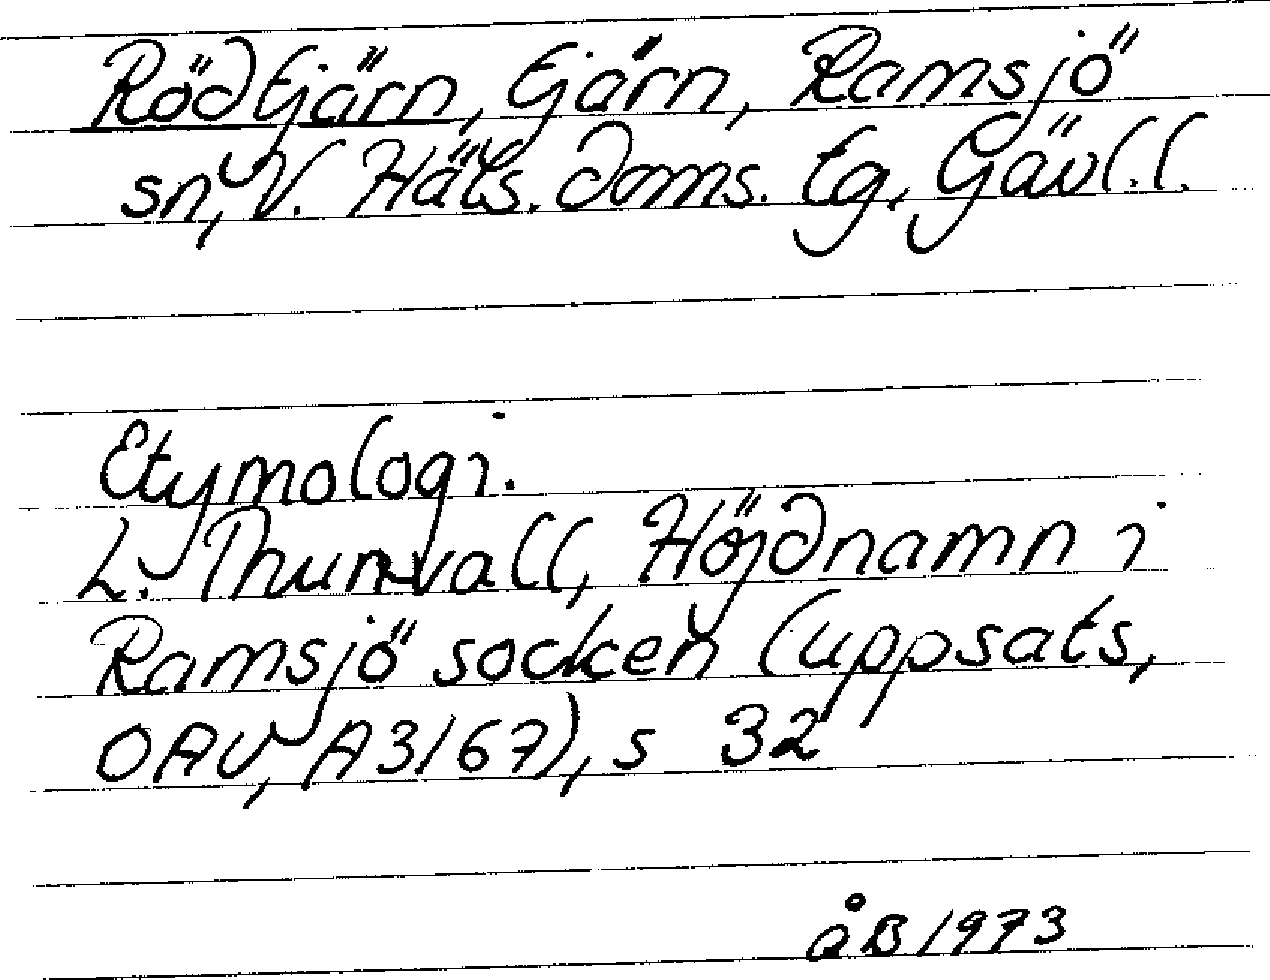 Rödtjärn, tjärn, Ramsjö
sn, V. Häls. doms. tg, Gävl.l.
Etymologi.
L. Thunvall, Höjdnamn i
Ramsjö socken (uppsats,
OAU, A3167), s 32
åB 1973